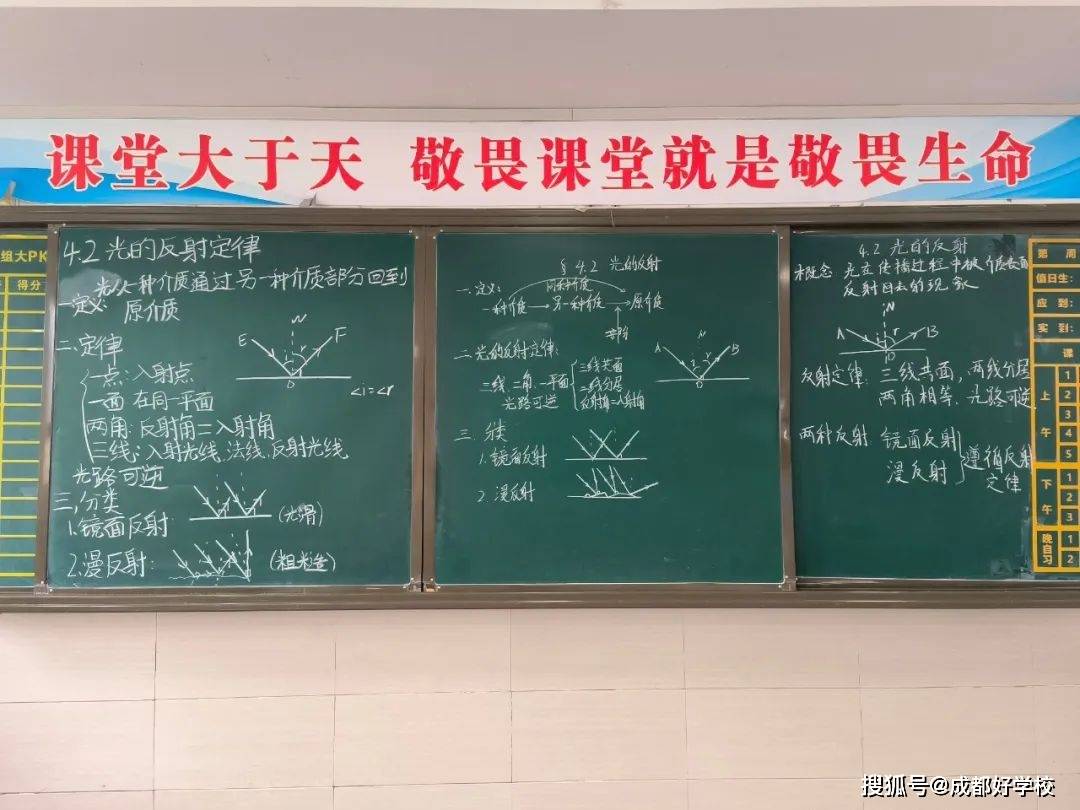 课堂大于天 敬畏课堂就是敬畏生命
组大PK
得分
4.2 光的反射定律
光从一种介质通过另一种介质部分回到
一定义: 原介质
二、定律
一点:入射点
一面 在同一平面
两角:反射角=入射角
三线:入射光线、法线、反射光线
光路可逆
E N F
i r
O
∠i=∠r
三,分类
1.镜面反射: (光滑)
2.漫反射: (粗糙)
§4.2 光的反射
一.定义:
同种介质
一种介质→另一种介质→原介质
部分
二.光的反射定律:
三线、二角、一平面
光路可逆
三线共面
二线分居
反射角=入射角
A N B
i r
O
三.分类
1.镜面反射
2.漫反射
4.2 光的反射
概念: 光在传播过程中被介质表面
反射回去的现象
A N B
i r
O
反射定律: 三线共面,两线分居
两角相等,光路可逆
两种反射: 镜面反射
漫反射
遵循反射
定律
第 周
值日生:
应 到:
实 到:
课
上午
1
2
3
4
5
下午
1
2
3
晚自习
1
2
搜狐号@成都好学校